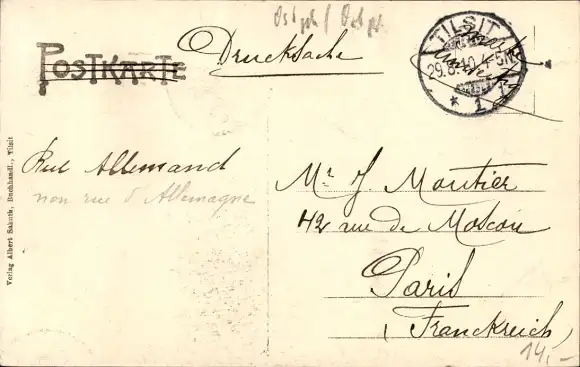 Ostpr / Ostpr
POSTKARTE
Drucksache
TILSIT
29.8.10. 4-5N.
* 1 f
Verlag Albert Sakuth, Buchhandl., Tilsit
Rue Allemand
non rue d'Allemagne
Mr. J. Moutier
42 rue de Moscou
Paris
(Franckreich)
14,-